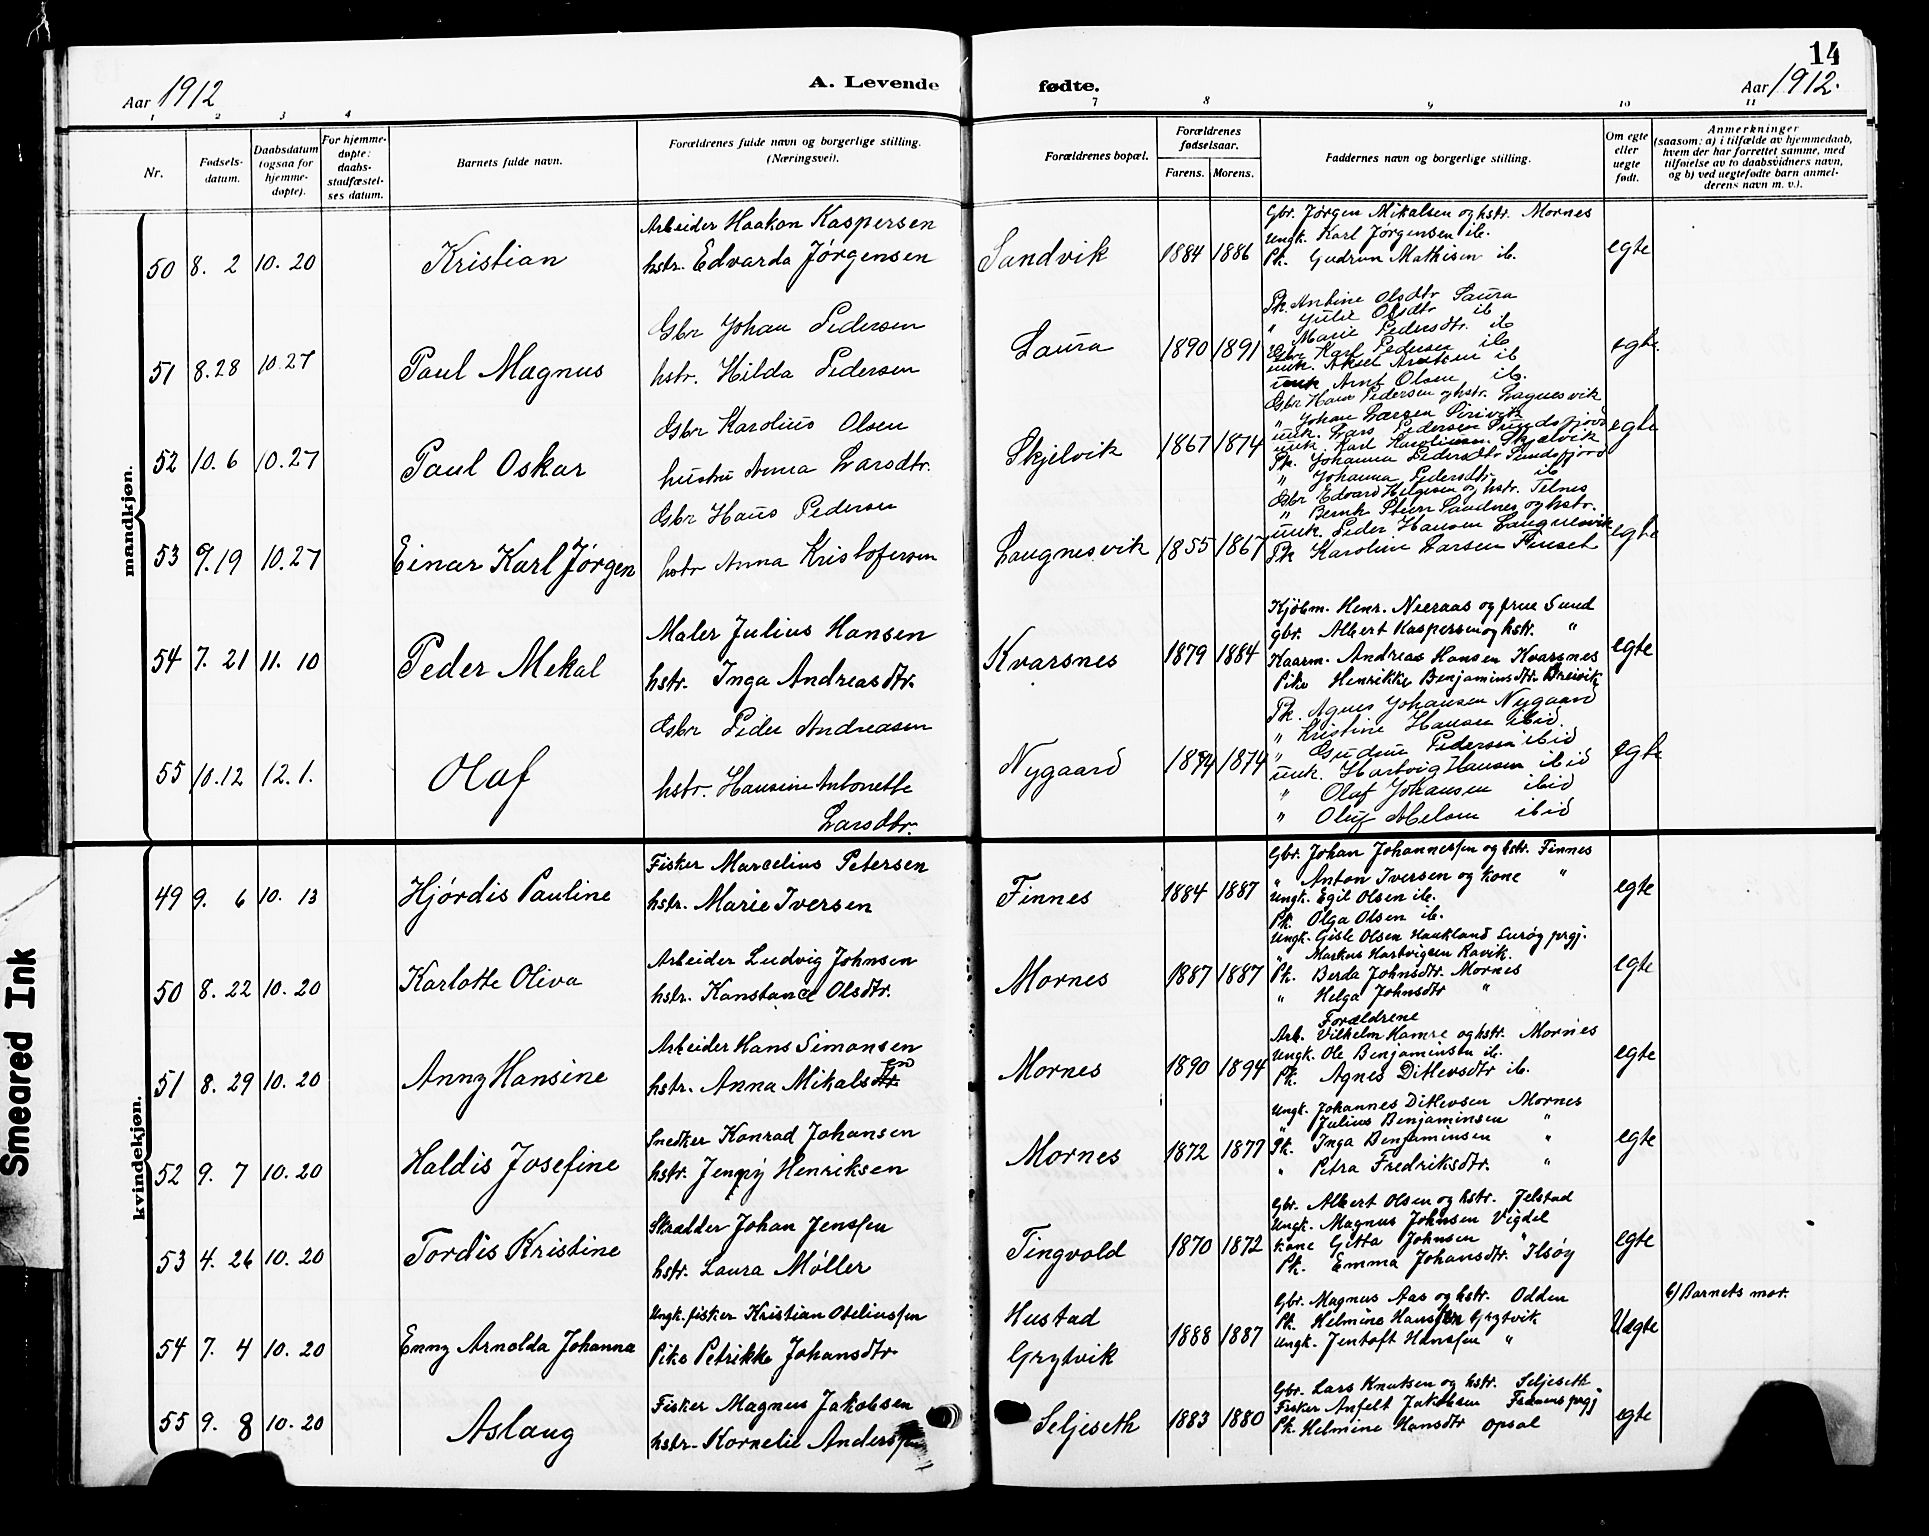 14
Aar 1912
A. Levende
fødte.
Aar 1912.
1 2 3 4 7 8 9 10 11
Nr.
Fødsels-
datum.
Daabsdatum
(ogsaa for
hjemme-
døpte).
For hjemme-
døpte:
daabs-
stadfæstel-
ses datum.
Barnets fulde navn.
Forældrenes fulde navn og borgerlige stilling.
(Næringsvei).
Forældrenes bopæl.
Forældrenes
fødselsaar.
Farens. Morens.
Faddernes navn og borgerlige stilling.
Om egte
eller
uegte
født.
Anmerkninger
(saasom: a) i tilfælde av hjemmedaab,
hvem der har forrettet samme, med
tilføielse av to daabsvidners navn,
og b) ved uegtefødte barn anmel-
derens navn m. v.).
mandkjøn.
50 8. 2 10. 20 Kristian
Arbeider Haakon Kaspersen
hstr. Edvarda Jørgensen
Sandvik 1884 1886
Gbr. Jørgen Mikalsen og hstr. Mornes
Ungk. Karl Jørgensen ib.
Pk. Gudrun Mathisen ib.
egte
51 8. 28 10. 27 Paul Magnus
Gbr Johan Pedersen
hstr. Hilda Pedersen
Laura 1890 1891
Pk. Antine Olsdtr Laura
" Julie Olsdtr ib
" Marie Pedersdtr. ib
Gbr Karl Pedersen ib
unk. Aksel ib
unk Arnt Olsen ib.
egte.
52 10. 6 10. 27 Paul Oskar
Gbr Karolius Olsen
hustru Anna Larsdtr.
Skjelvik 1867 1874
Gbr Hans Pedersen og hstr. Laugnesvik
" Johan Larsen
unk. Lars Pedersen Sundsfjord
unk. Karl Karoliussen Skjelvik
Pk. Johanna Pedersdtr Sundsfjord
" Johanna Pedersdtr. ib
egte
53 9. 19 10. 27 Einar Karl Jørgen
Gbr Hans Pedersen
hstr Anna Kristofersen
Laugnesvik 1855 1867
Gbr Edvard Helgesen og hstr. Telnes
" Bernh Steen Sandnes og hstr.
unk. Peder Hansen Laugnesvik
Pk Karoline Larsen Finset
egte
54 7. 21 11. 10 Peder Mekal
Maler Julius Hansen
hstr. Inga Andreasdtr.
Kvarsnes 1879 1884
Kjøbm. Henr. Neeraas og frue Sund
gbr. Albert Kaspersen og hstr. "
Kaarm. Andreas Hansen Kvarsnes
Pike Henrikke Benjaminsdtr. Breivik
egte
55 10. 12 12. 1. Olaf
Gbr Peder Andreasen
hstr. Hansine Antonette
Larsdtr.
Nygaard 1874 1874
Pk. Agnes Johansen Nygaard
" Kristine Hansen ibid.
" Gudrun Pedersen ibid
unk. Hartvig Hansen ibid
" Olaf Johansen ibid
" Oluf Melsen ibid
egte
kvindekjøn.
49 9. 6 10. 13 Hjørdis Pauline
Fisker Marcelius Petersen
hstr. Marie Iversen
Finnes 1884 1887
Gbr. Johan Johannessen og hstr. Finnes
" Anton Iversen og kone "
Ungk. Egil Olsen ib.
Pk. Olga Olsen ib.
egte
50 8. 22 10. 20 Karlotte Oliva
Arbeider Ludvig Johnsen
hstr. Konstance Olsdtr.
Mornes 1887 1887
Ungk. Gisle Olsen Haukland Surøy prgj.
" Markus Hartvigsen Ravik.
Pk. Berda Johnsdtr. Mornes
" Helga Johnsdtr "
Forældrene
egte
51 8. 29 10. 20 Anny Hansine
Arbeider Hans Simonsen
hstr. Anna Mikalsdtr
Mornes 1890 1894
Arb. Vilhelm Hamre og hstr. Mornes
Ungk. Ole Benjaminsen ib.
Pk. Agnes Ditlevsdtr ib.
egte
52 9. 7 10. 20 Haldis Josefine
Snedker Konrad Johansen
hstr. Jenny Henriksen
Mornes 1872 1877
Ungk. Johannes Ditlevsen Mornes
" Julius Benjaminsen "
Pk. Inga Benjaminsen "
" Petra Fredriksdtr. "
egte
53 4. 26 10. 20 Tordis Kristine
Skrædder Johan Jenssen
hstr. Laura Møller
Tingvold 1870 1872
Gbr. Albert Olsen og hstr. Jelstad
Ungk. Magnus Johnsen Vigdel
Kone Gitta Johnsen "
Pk. Emma Johansdtr. Ilsøy
egte
54 7. 4 10. 20 Enny Arnolda Johanna
Ungk. fisker Kristian Oteliussen
Pike Petrikke Johansdtr
Hustad
Grytvik
1888 1887
Gbr. Magnus Aas og hstr. Odden
Pk. Helmine Hanssen Grytvik
Ungk. Jentoft Hanssen "
Uegte
b) Barnets mor.
55 9. 8 10. 20 Aslaug
Fisker Magnus Jakobsen
hstr. Kornelie Anderssen
Seljeseth 1883 1880
Gbr. Lars Knutsen og hstr. Seljeseth
Fisker Anfelt Jakobsen Frænens prgj
Pk. Helmine Hansdtr Opsal
egte
Smeared Ink